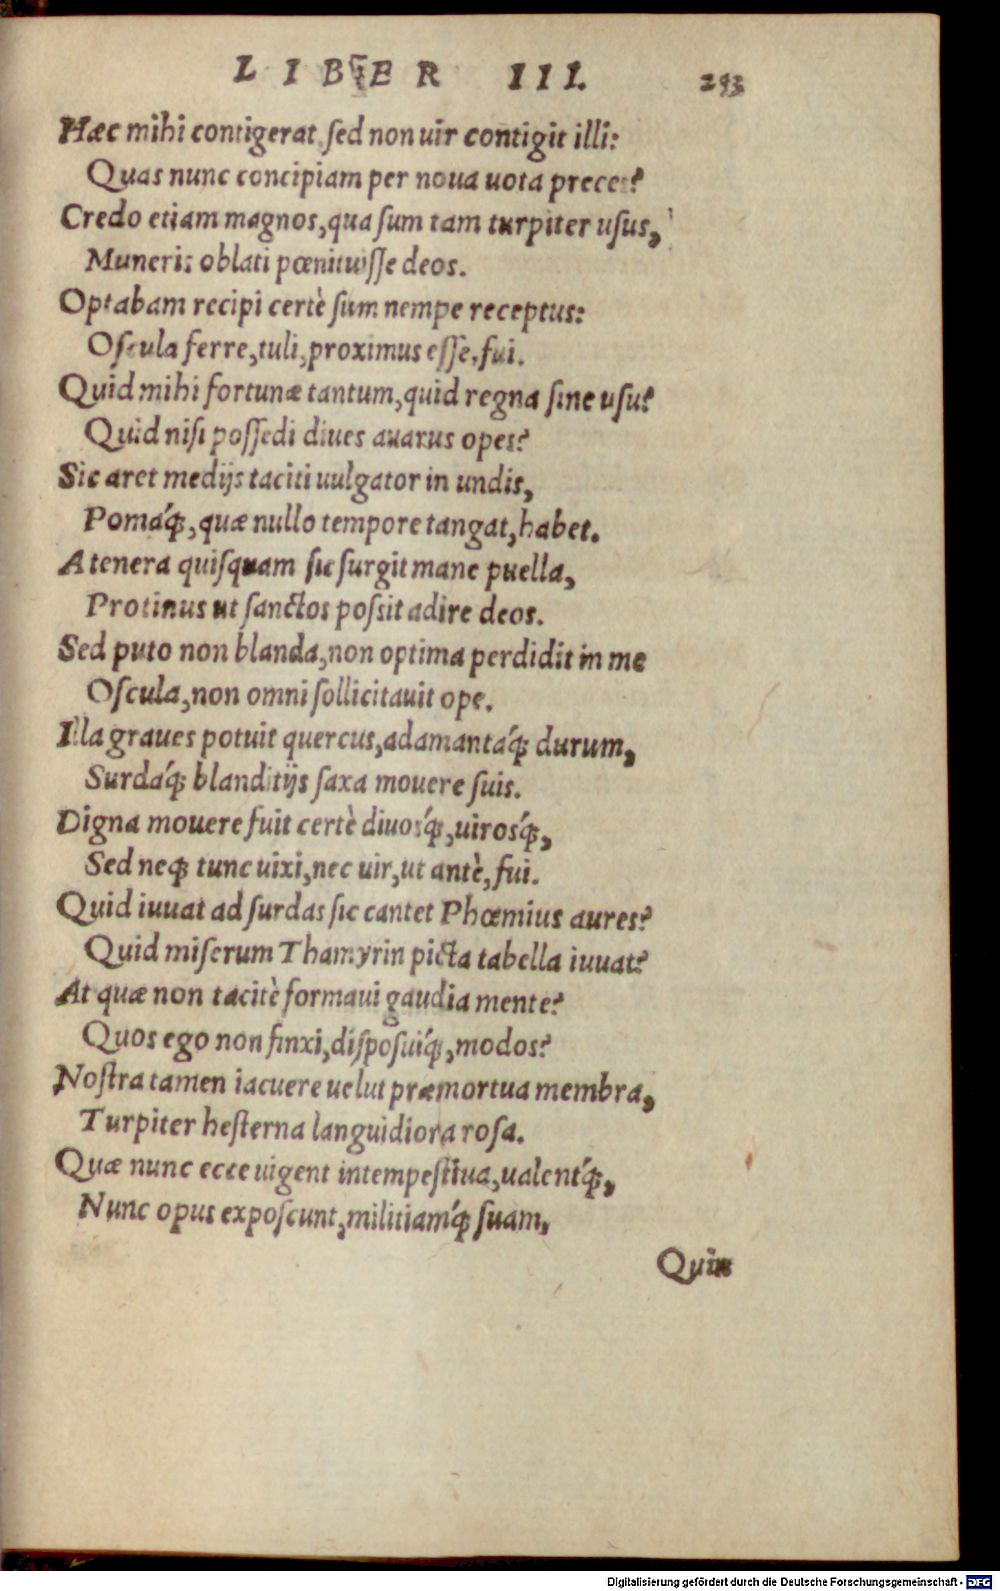 LIBER III. 293
Hæc mihi contigerat, sed non uir contigit illi:
Quas nunc concipiam per noua uota preces?
Credo etiam magnos, qua sum tam turpiter usus,
Muneris oblati pœnituisse deos.
Optabam recipi certè sum nempe receptus:
Oscula ferre, tuli, proximus esse, fui.
Quid mihi fortunæ tantum, quid regna sine usu?
Quid nisi possedi diues auarus opes?
Sic aret medijs taciti uulgator in undis,
Pomáq;, quæ nullo tempore tangat, habet.
A tenera quisquam sic surgit mane puella,
Protinus ut sanctos possit adire deos.
Sed puto non blanda, non optima perdidit in me
Oscula, non omni sollicitauit ope.
Illa graues potuit quercus, adamantáq; durum,
Surdáq; blanditijs saxa mouere suis.
Digna mouere fuit certè diuosq́;, uirosq́;,
Sed neq; tunc uixi, nec uir, ut antè, fui.
Quid iuuat ad surdas sic cantet Phœmius aures?
Quid miserum Thamyrin picta tabella iuuat?
At quæ non tacitè formaui gaudia mente?
Quos ego non finxi, disposuiq́;, modos?
Nostra tamen iacuere uelut præmortua membra,
Turpiter hesterna languidiora rosa.
Quæ nunc ecce uigent intempestiua, ualentq́;,
Nunc opus exposcunt, militiamq́; suam,
Quin
Digitalisierung gefördert durch die Deutsche Forschungsgemeinschaft - DFG